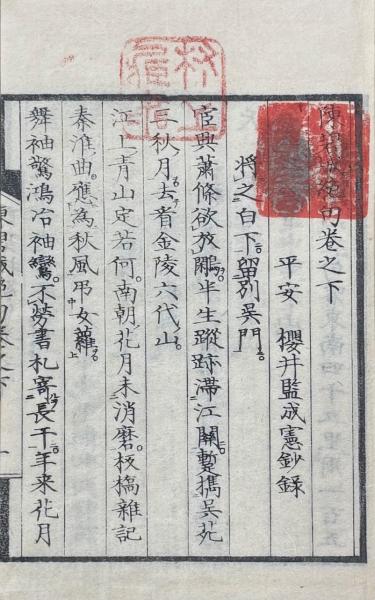 陳碧城絶句卷之下
平安 櫻井監成憲鈔錄
將之白下留別吳門
宦興蕭條欲放鷴。半生蹤跡滯江關。蹔攜吳苑
三秋月。去看金陵六代山。
江上青山定若何。南朝花月未消磨。板橋雜記
秦淮曲。應為秋風弔女蘿。
舞袖驚鴻冶袖鸞。不勞書札寄長干。年來花月